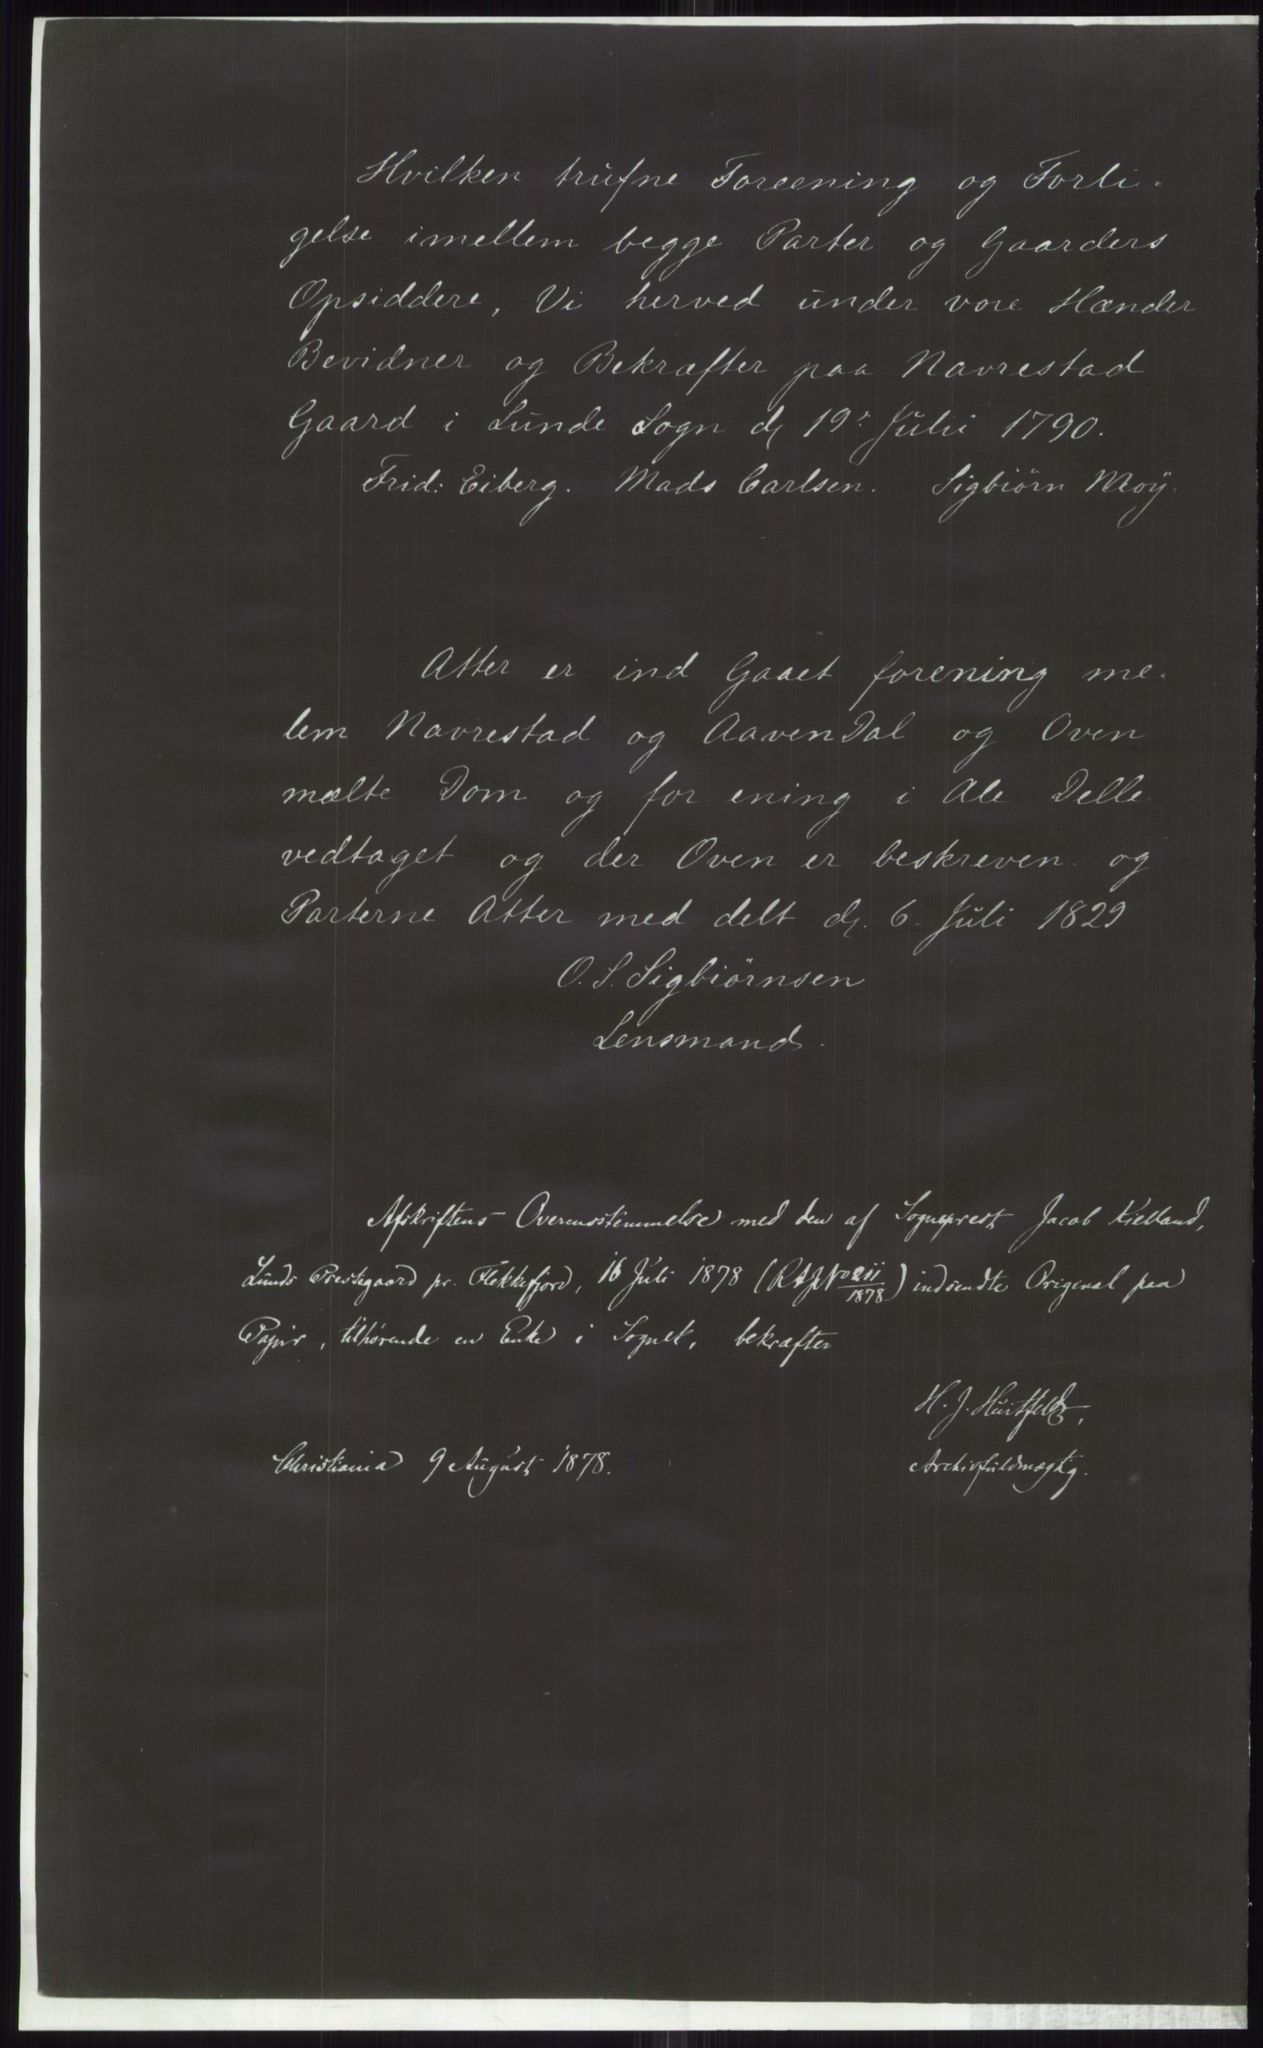 Hvilken trufne Foreening og Forli-
gelse imellem begge Parter og Gaarders
Opsiddere, Vi herved under vore Hænder
Bevidner og Bekræfter paa Navrestad
Gaard i Lunde Sogn d. 19de Julii 1790.
Frid: Eiberg. Mads Carlsen. Sigbiørn Moÿ.
Atter er ind Gaaet forening me-
lem Navrestad og AavenDal og Oven
mælte Dom og for ening i Ale Delle
vedtaget og der Oven er beskreven og
Parterne Atter med delt d. 6. Juli 1829
O. S. Sigbiørnsen
Lensmand.
Afskriftens Overensstemmelse med den af Sogneprest Jacob Kielland,
Lunds Prestegaard pr. Flekkefjord, 16 Juli 1878 (RA J No 211/1878) indsendte Original paa
Papir, tilhørende en Enke i Sognet, bekræfter
H. J. Huitfeldt,
Christiania 9 August 1878. Archivfuldmægtig.